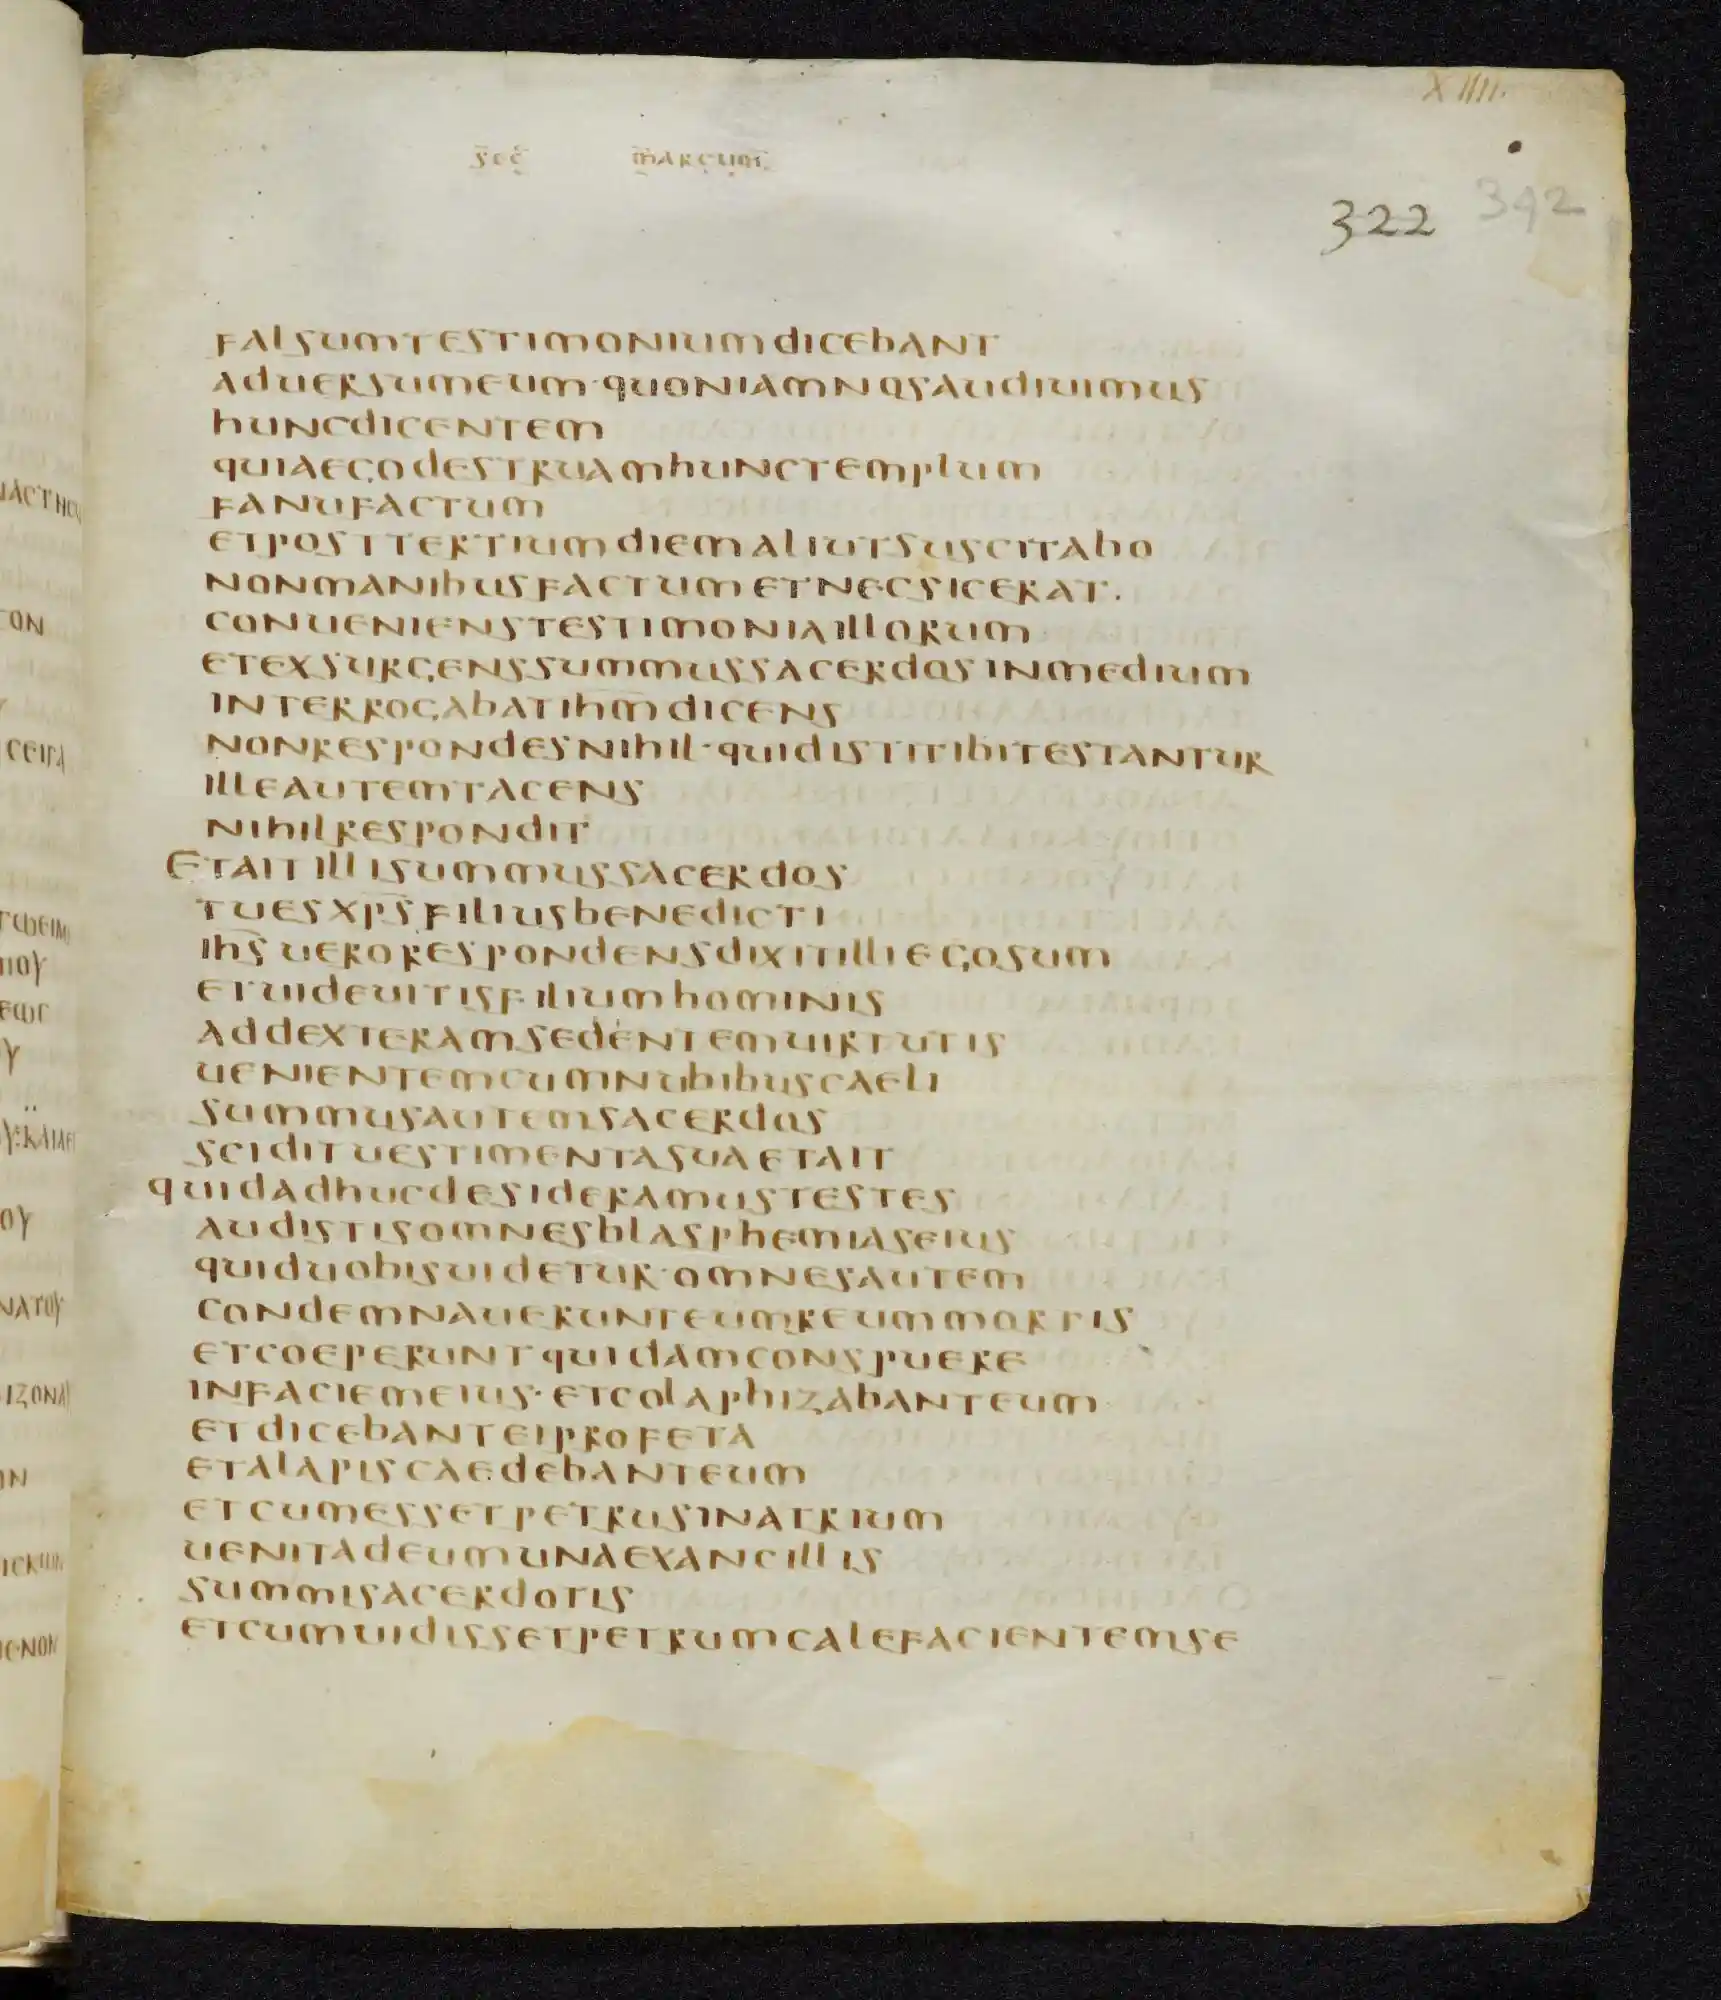 XIIII.
sec̄ marcum
322 342
falsumtestimoniumdicebant
aduersumeum·quoniamnosaudiuimus
huncdicentem
quiaegodestruamhunctemplum
fanufactum
etposttertiumdiemaliutsuscitabo
nonmanibusfactumetnecsicerat·
conuenienstestimoniaillorum
etexsurgenssummussacerdosinmedium
interrogabatih̄m̄dicens
nonrespondesnihil·quidistitibitestantur
illeautemtacens
nihilrespondit
Etaitillisummussacerdos
tuesxp̄s̄filiusbenedicti
ih̄s̄uerorespondensdixitilliegosum
etuideuitisfiliumhominis
addexteramsedentemuirtutis
uenientemcumnubibuscaeli
summusautemsacerdos
scidituestimentasuaetait
quidadhucdesideramustestes
audistisomnesblasphemiaseius
quiduobisuidetur·omnesautem
condemnauerunteumreummortis
etcoeperuntquidamconspuere
infaciemeius·etcolaphizabanteum
etdicebanteiprofeta
etalapiscaedebanteum
etcumessetpetrusinatrium
uenitadeumunaexancillis
summisacerdotis
etcumuidissetpetrumcalefacientemse